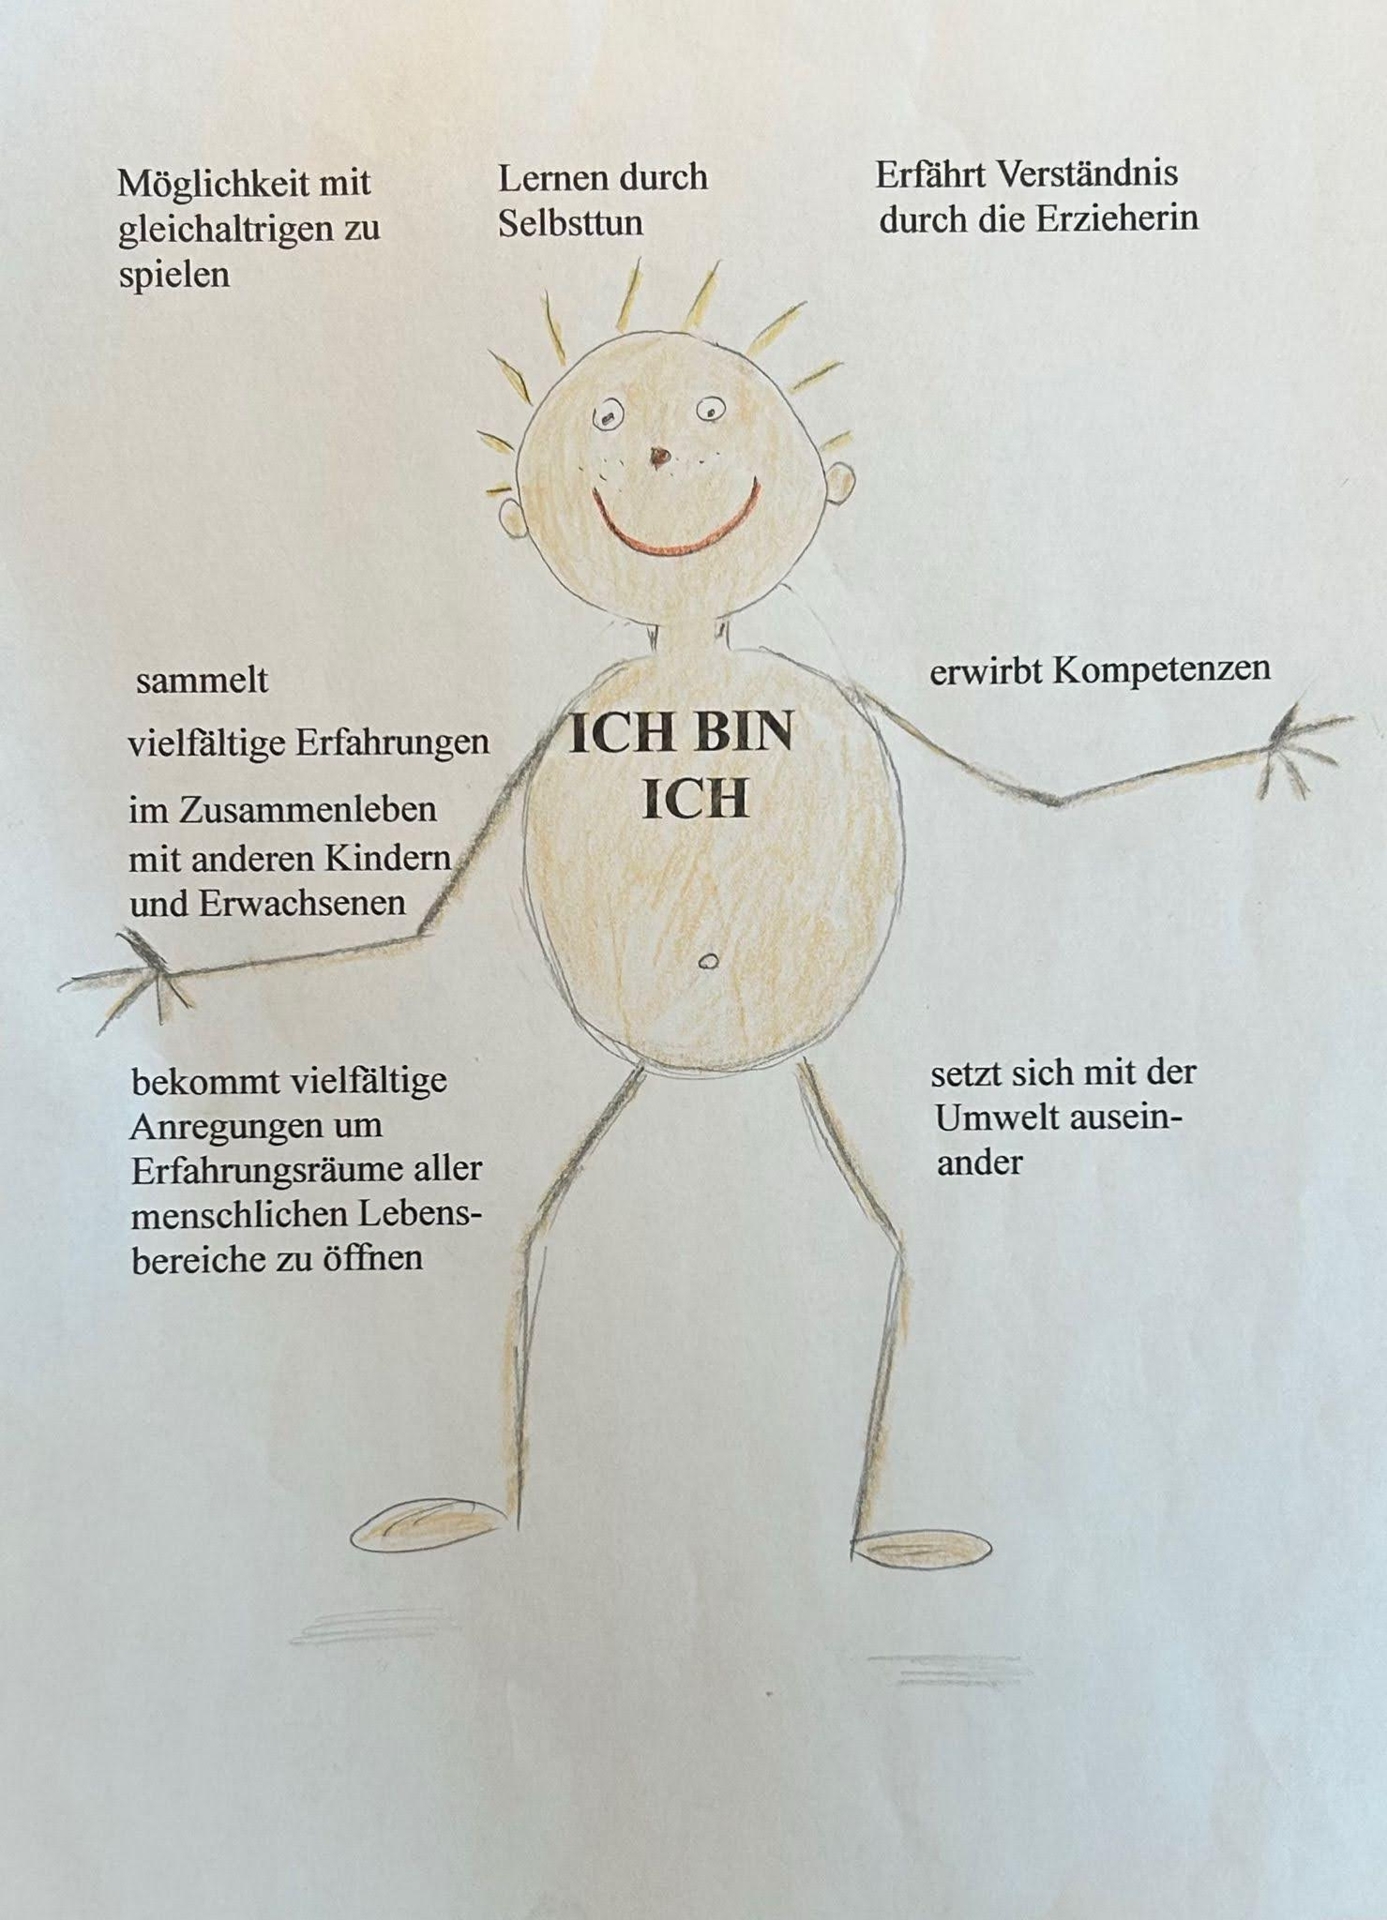 Möglichkeit mit
gleichaltrigen zu
spielen
Lernen durch
Selbsttun
Erfährt Verständnis
durch die Erzieherin
sammelt
vielfältige Erfahrungen
im Zusammenleben
mit anderen Kindern
und Erwachsenen
ICH BIN
ICH
erwirbt Kompetenzen
bekommt vielfältige
Anregungen um
Erfahrungsräume aller
menschlichen Lebens-
bereiche zu öffnen
setzt sich mit der
Umwelt ausein-
ander